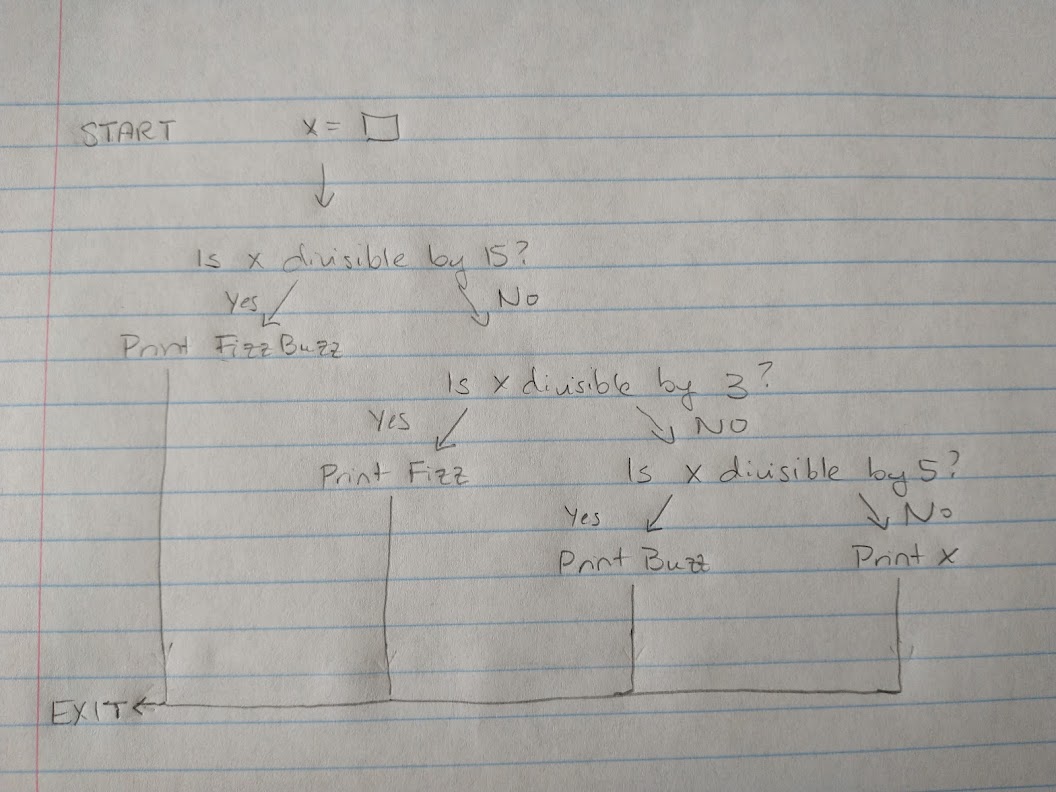 START x = □
Is x divisible by 15?
Yes No
Print FizzBuzz
Is x divisible by 3?
Yes No
Print Fizz Is x divisible by 5?
Yes No
Print Buzz Print x
EXIT